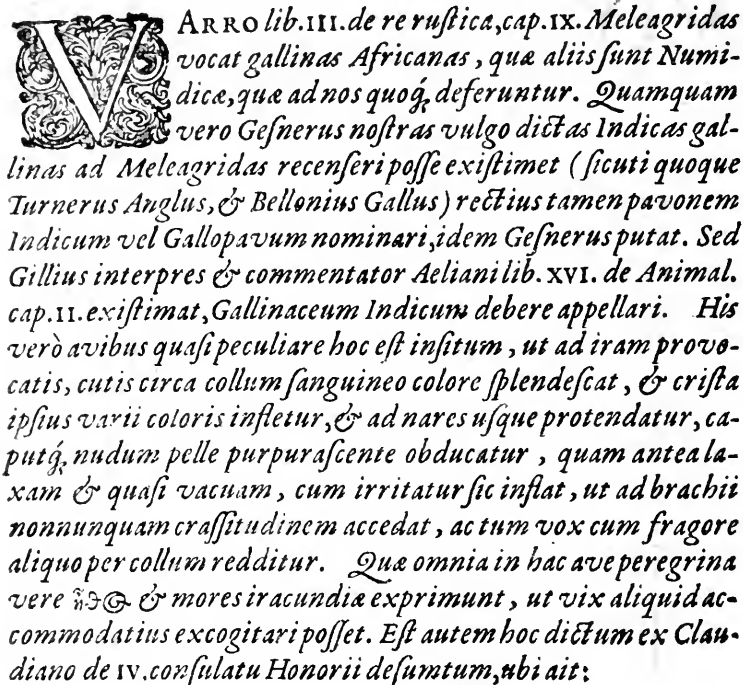 VARRO lib.III. de re ruſtica, cap.IX. Meleagridas
vocat gallinas Africanas, quæ aliis ſunt Numi-
dicæ, quæ ad nos quoq́; deferuntur. Quamquam
vero Geſnerus noſtras vulgo dictas Indicas gal-
linas ad Meleagridas recenſeri poſſe exiſtimet (ſicuti quoque
Turnerus Anglus, & Bellonius Gallus) rectius tamen pavonem
Indicum vel Gallopavum nominari, idem Geſnerus putat. Sed
Gillius interpres & commentator Aeliani lib. XVI. de Animal.
cap.II. exiſtimat, Gallinaceum Indicum debere appellari. His
verò avibus quaſi peculiare hoc eſt inſitum, ut ad iram provo-
catis, cutis circa collum ſanguineo colore ſplendeſcat, & criſta
ipſius varii coloris infletur, & ad nares uſque protendatur, ca-
putq́; nudum pelle purpuraſcente obducatur, quam antea la-
xam & quaſi vacuam, cum irritatur ſic inflat, ut ad brachii
nonnunquam craſſitudinem accedat, ac tum vox cum fragore
aliquo per collum redditur. Quæ omnia in hac ave peregrina
vere & mores iracundiæ exprimunt, ut vix aliquid ac-
commodatius excogitari poſſet. Eſt autem hoc dictum ex Clau-
diano de IV. conſulatu Honorii deſumtum, ubi ait: